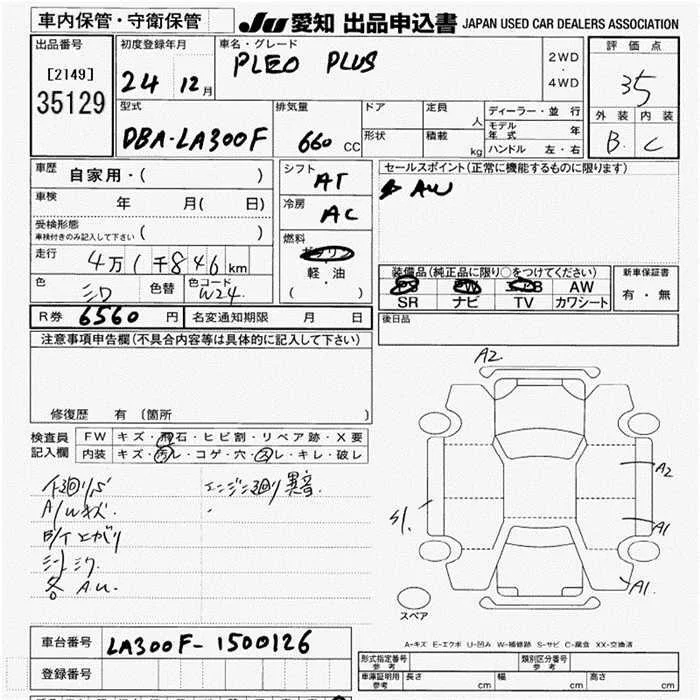 車内保管・守衛保管
JU 愛知 出品申込書 JAPAN USED CAR DEALERS ASSOCIATION
出品番号
[2149]
35129
初度登録年月
24 12月
車名・グレード
PLEO PLUS
2WD
・
4WD
評価点
35
外装 内装
B. C
型式
DBA-LA300F
排気量
660 CC
ドア
形状
定員 人
積載 kg
ディーラー・並行
モデル年式 年
ハンドル 左・右
車歴 自家用・( )
車検 年 月( 日)
受検形態
車検付きのみ記入して下さい ( )
走行 4万1千846km
色 シロ 色替 色コード W24.
シフト AT
冷房 AC
燃料
ガソリン
・
軽油
・
( )
セールスポイント(正常に機能するものに限ります)
AW
装備品(純正品に限り○をつけてください)
AW
SR ナビ TV カワシート
新車保証書
有・無
R券 6560円 名変通知期限 月 日
後日品
注意事項申告欄(不具合内容等は具体的に記入して下さい)
修復歴 有 (箇所 )
検査員
記入欄
FW キズ・飛石・ヒビ割・リペア跡・X要
内装 キズ・汚レ・コゲ・穴・スレ・キレ・破レ
下廻りサビ
エンジン廻り異音.
A/Wキズ.
シートシワ
各 A.U.
A2
A2
A1
A1.
S1.
スペア
A-キズ E-エクボ U-凹み W-補修跡 S-サビ C-腐食 XX-交換済
車台番号 LA300F-1500126
登録番号
形式指定番号
参考
類別区分番号
参考
車庫証明用
参考
長さ cm 幅 cm 高さ cm